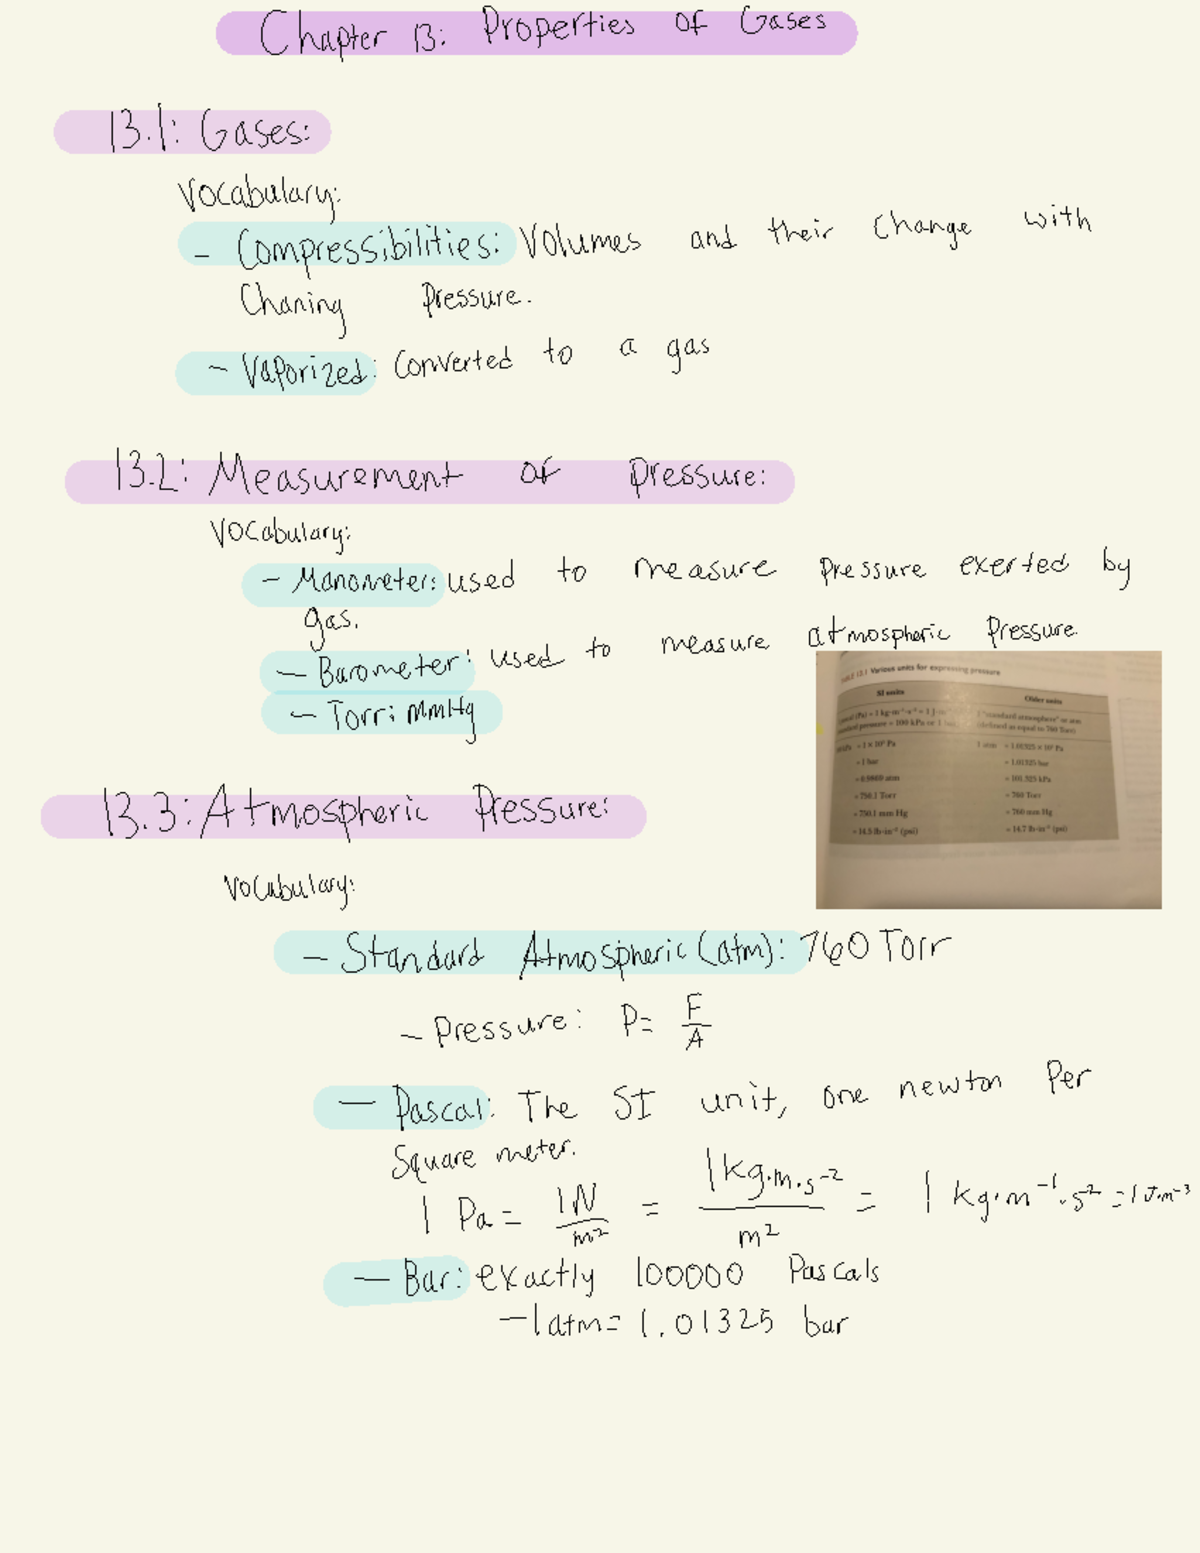 Chapter 13: Properties of Gases
13.1: Gases:
Vocabulary:
- Compressibilities: Volumes and their change with
Chaning Pressure.
- Vaporized: Converted to a gas
13.2: Measurement of Pressure:
Vocabulary:
- Manometer: used to measure pressure exerted by
gas.
- Barometer: used to measure atmospheric Pressure.
- Torr: mmHg
13.1 Various units for expressing pressure
SI units Older units
= 1 kg·m⁻¹·s⁻² = 1 J "standard atmosphere" or atm
pressure = 100 kPa or 1 (defined as equal to 760 Torr)
= 1 × 10⁵ Pa 1 atm = 1.01325 × 10⁵ Pa
= 1 bar = 1.01325 bar
= 0.9869 atm = 101.325 kPa
= 750.1 Torr = 760 Torr
= 750.1 mm Hg = 760 mm Hg
= 14.5 lb·in⁻² (psi) = 14.7 lb·in⁻² (psi)
13.3: Atmospheric Pressure:
Vocabulary:
- Standard Atmospheric (atm): 760 Torr
- Pressure: P = F/A
- Pascal: The SI unit, one newton Per
Square meter.
1 Pa = 1N/m² = 1kg·m·s⁻²/m² = 1 kg·m⁻¹·s² = 1 J·m⁻³
- Bar: exactly 100000 Pascals
- 1 atm = 1.01325 bar